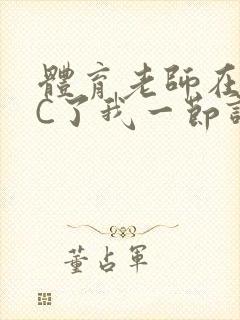 體育老師在
C了我一節
董占軍